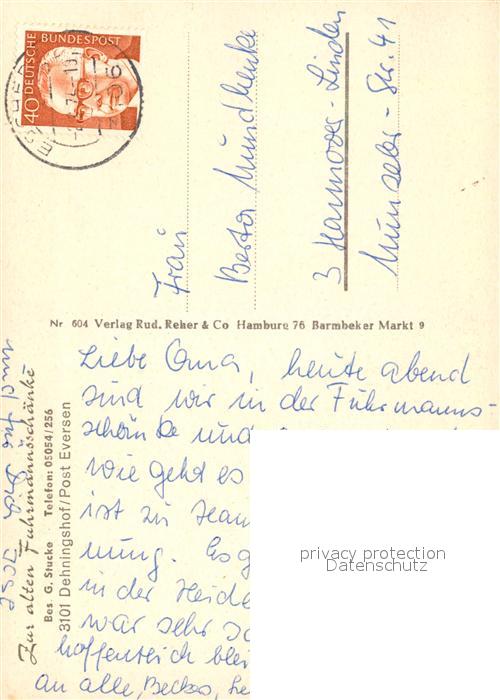 40 DEUTSCHE BUNDESPOST
Frau
Berta Mundhenke
3 Hannover-Linden
Nr 604 Verlag Rud. Reher & Co Hamburg 76 Barmbeker Markt 9
Zur alten Fuhrmannsschänke
Bes. G. Stucke Telefon: 05054/256
3101 Dehningshof/Post Eversen
Liebe Oma, heute abend
sind wir in der Fuhrmanns-
schänke und
wie geht es
ist zu
nung. Es
in der Heide
war sehr
hoffentlich
an alle,
und für Dich
privacy protection
Datenschutz